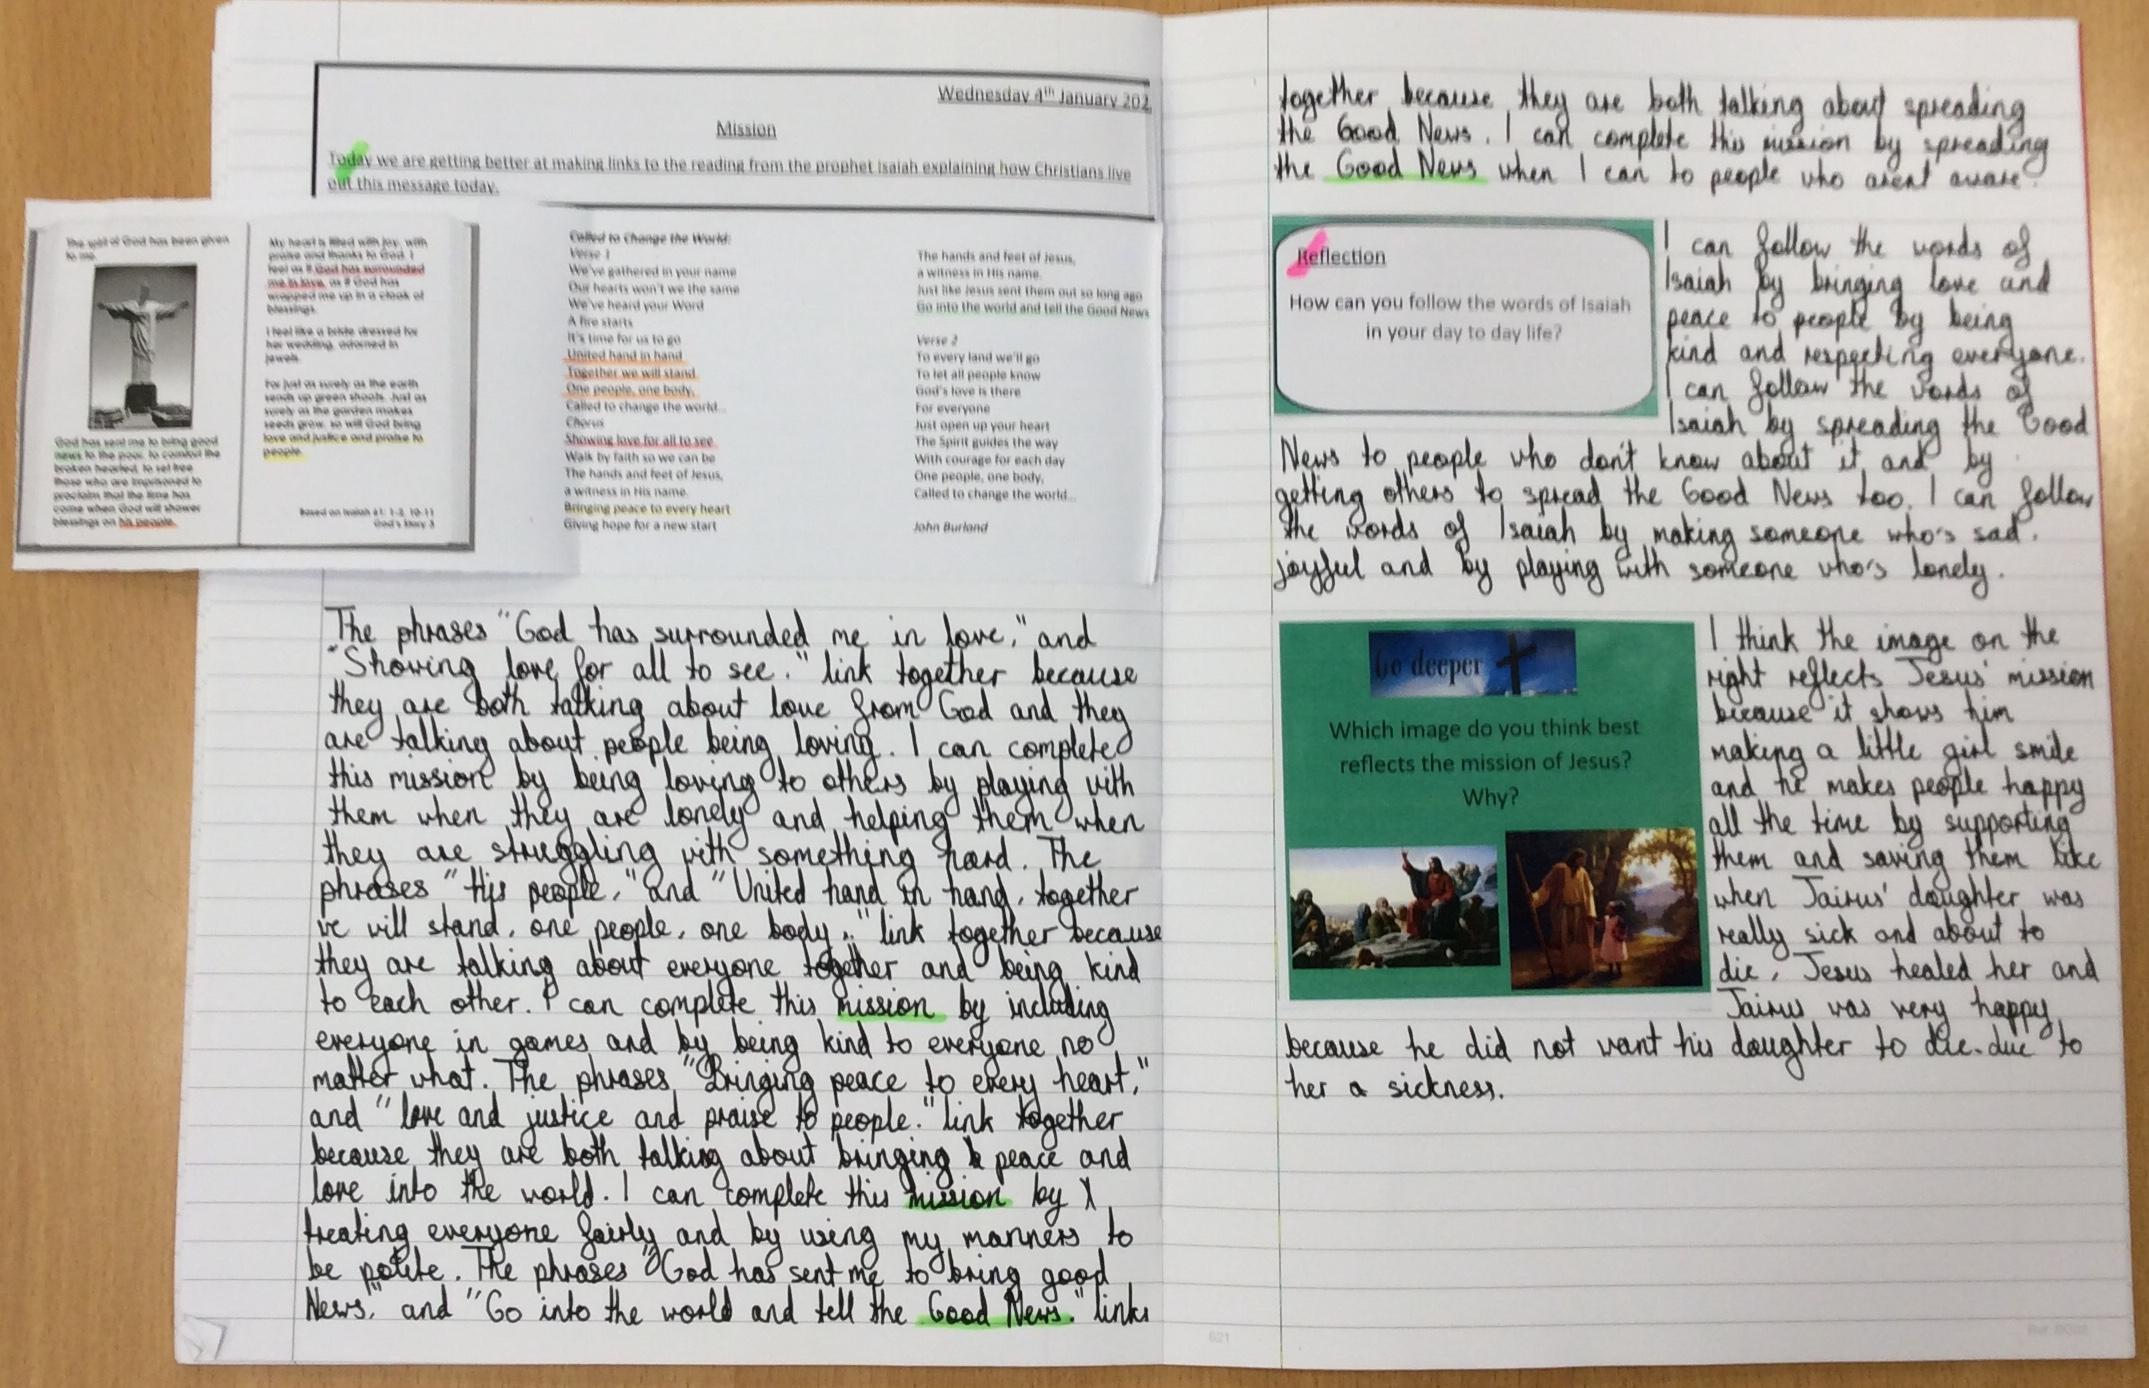 Wednesday 4th January 202
Mission
Today we are getting better at making links to the reading from the prophet Isaiah explaining how Christians live
out this message today.
The spirit of God has been given
to me.
God has sent me to bring good
news to the poor, to comfort the
broken hearted, to set free
those who are imprisoned to
proclaim that the time has
come when God will shower
blessings on his people.
My heart is filled with joy, with
praise and thanks to God. I
feel as if God has surrounded
me in love, as if God has
wrapped me up in a cloak of
blessings.
I feel like a bride dressed for
her wedding, adorned in
jewels.
For just as surely as the earth
sends up green shoots. Just as
surely as the garden makes
seeds grow, so will God bring
love and justice and praise to
people.
Based on Isaiah 61: 1-2, 10-11
God's Story 3
Called to Change the World:
Verse 1
We've gathered in your name
Our hearts won't we the same
We've heard your Word
A fire starts
It's time for us to go
United hand in hand
Together we will stand
One people, one body,
Called to change the world...
Chorus
Showing love for all to see
Walk by faith so we can be
The hands and feet of Jesus,
a witness in His name.
Bringing peace to every heart
Giving hope for a new start
The hands and feet of Jesus,
a witness in His name.
Just like Jesus sent them out so long ago
Go into the world and tell the Good News
Verse 2
To every land we'll go
To let all people know
God's love is there
For everyone
Just open up your heart
The Spirit guides the way
With courage for each day
One people, one body,
Called to change the world...
John Burland
The phrases "God has surrounded me in love," and
"Showing love for all to see." link together because
they are both talking about love from God and they
are talking about people being loving. I can complete
this mission by being loving to others by playing with
them when they are lonely and helping them when
they are struggling with something hard. The
phrases "His people," and "United hand in hand, together
we will stand, one people, one body." link together because
they are talking about everyone together and being kind
to each other. I can complete this mission by including
everyone in games and by being kind to everyone no
matter what. The phrases, "Bringing peace to every heart,"
and "love and justice and praise to people." link together
because they are both talking about bringing peace and
love into the world. I can complete this mission by
treating everyone fairly and by using my manners to
be polite. The phrases "God has sent me to bring good
News," and "Go into the world and tell the Good News." links
together because they are both talking about spreading
the Good News. I can complete this mission by spreading
the Good News when I can to people who arent aware.
Reflection
How can you follow the words of Isaiah
in your day to day life?
I can follow the words of
Isaiah by bringing love and
peace to people by being
kind and respecting everyone.
I can follow the words of
Isaiah by spreading the Good
News to people who don't know about it and by
getting others to spread the Good News too. I can follow
the words of Isaiah by making someone who's sad,
joyful and by playing with someone who's lonely.
Go deeper
Which image do you think best
reflects the mission of Jesus?
Why?
I think the image on the
right reflects Jesus' mission
because it shows him
making a little girl smile
and he makes people happy
all the time by supporting
them and saving them like
when Jairus' daughter was
really sick and about to
die, Jesus healed her and
Jairus was very happy
because he did not want his daughter to die due to
her a sickness.
621